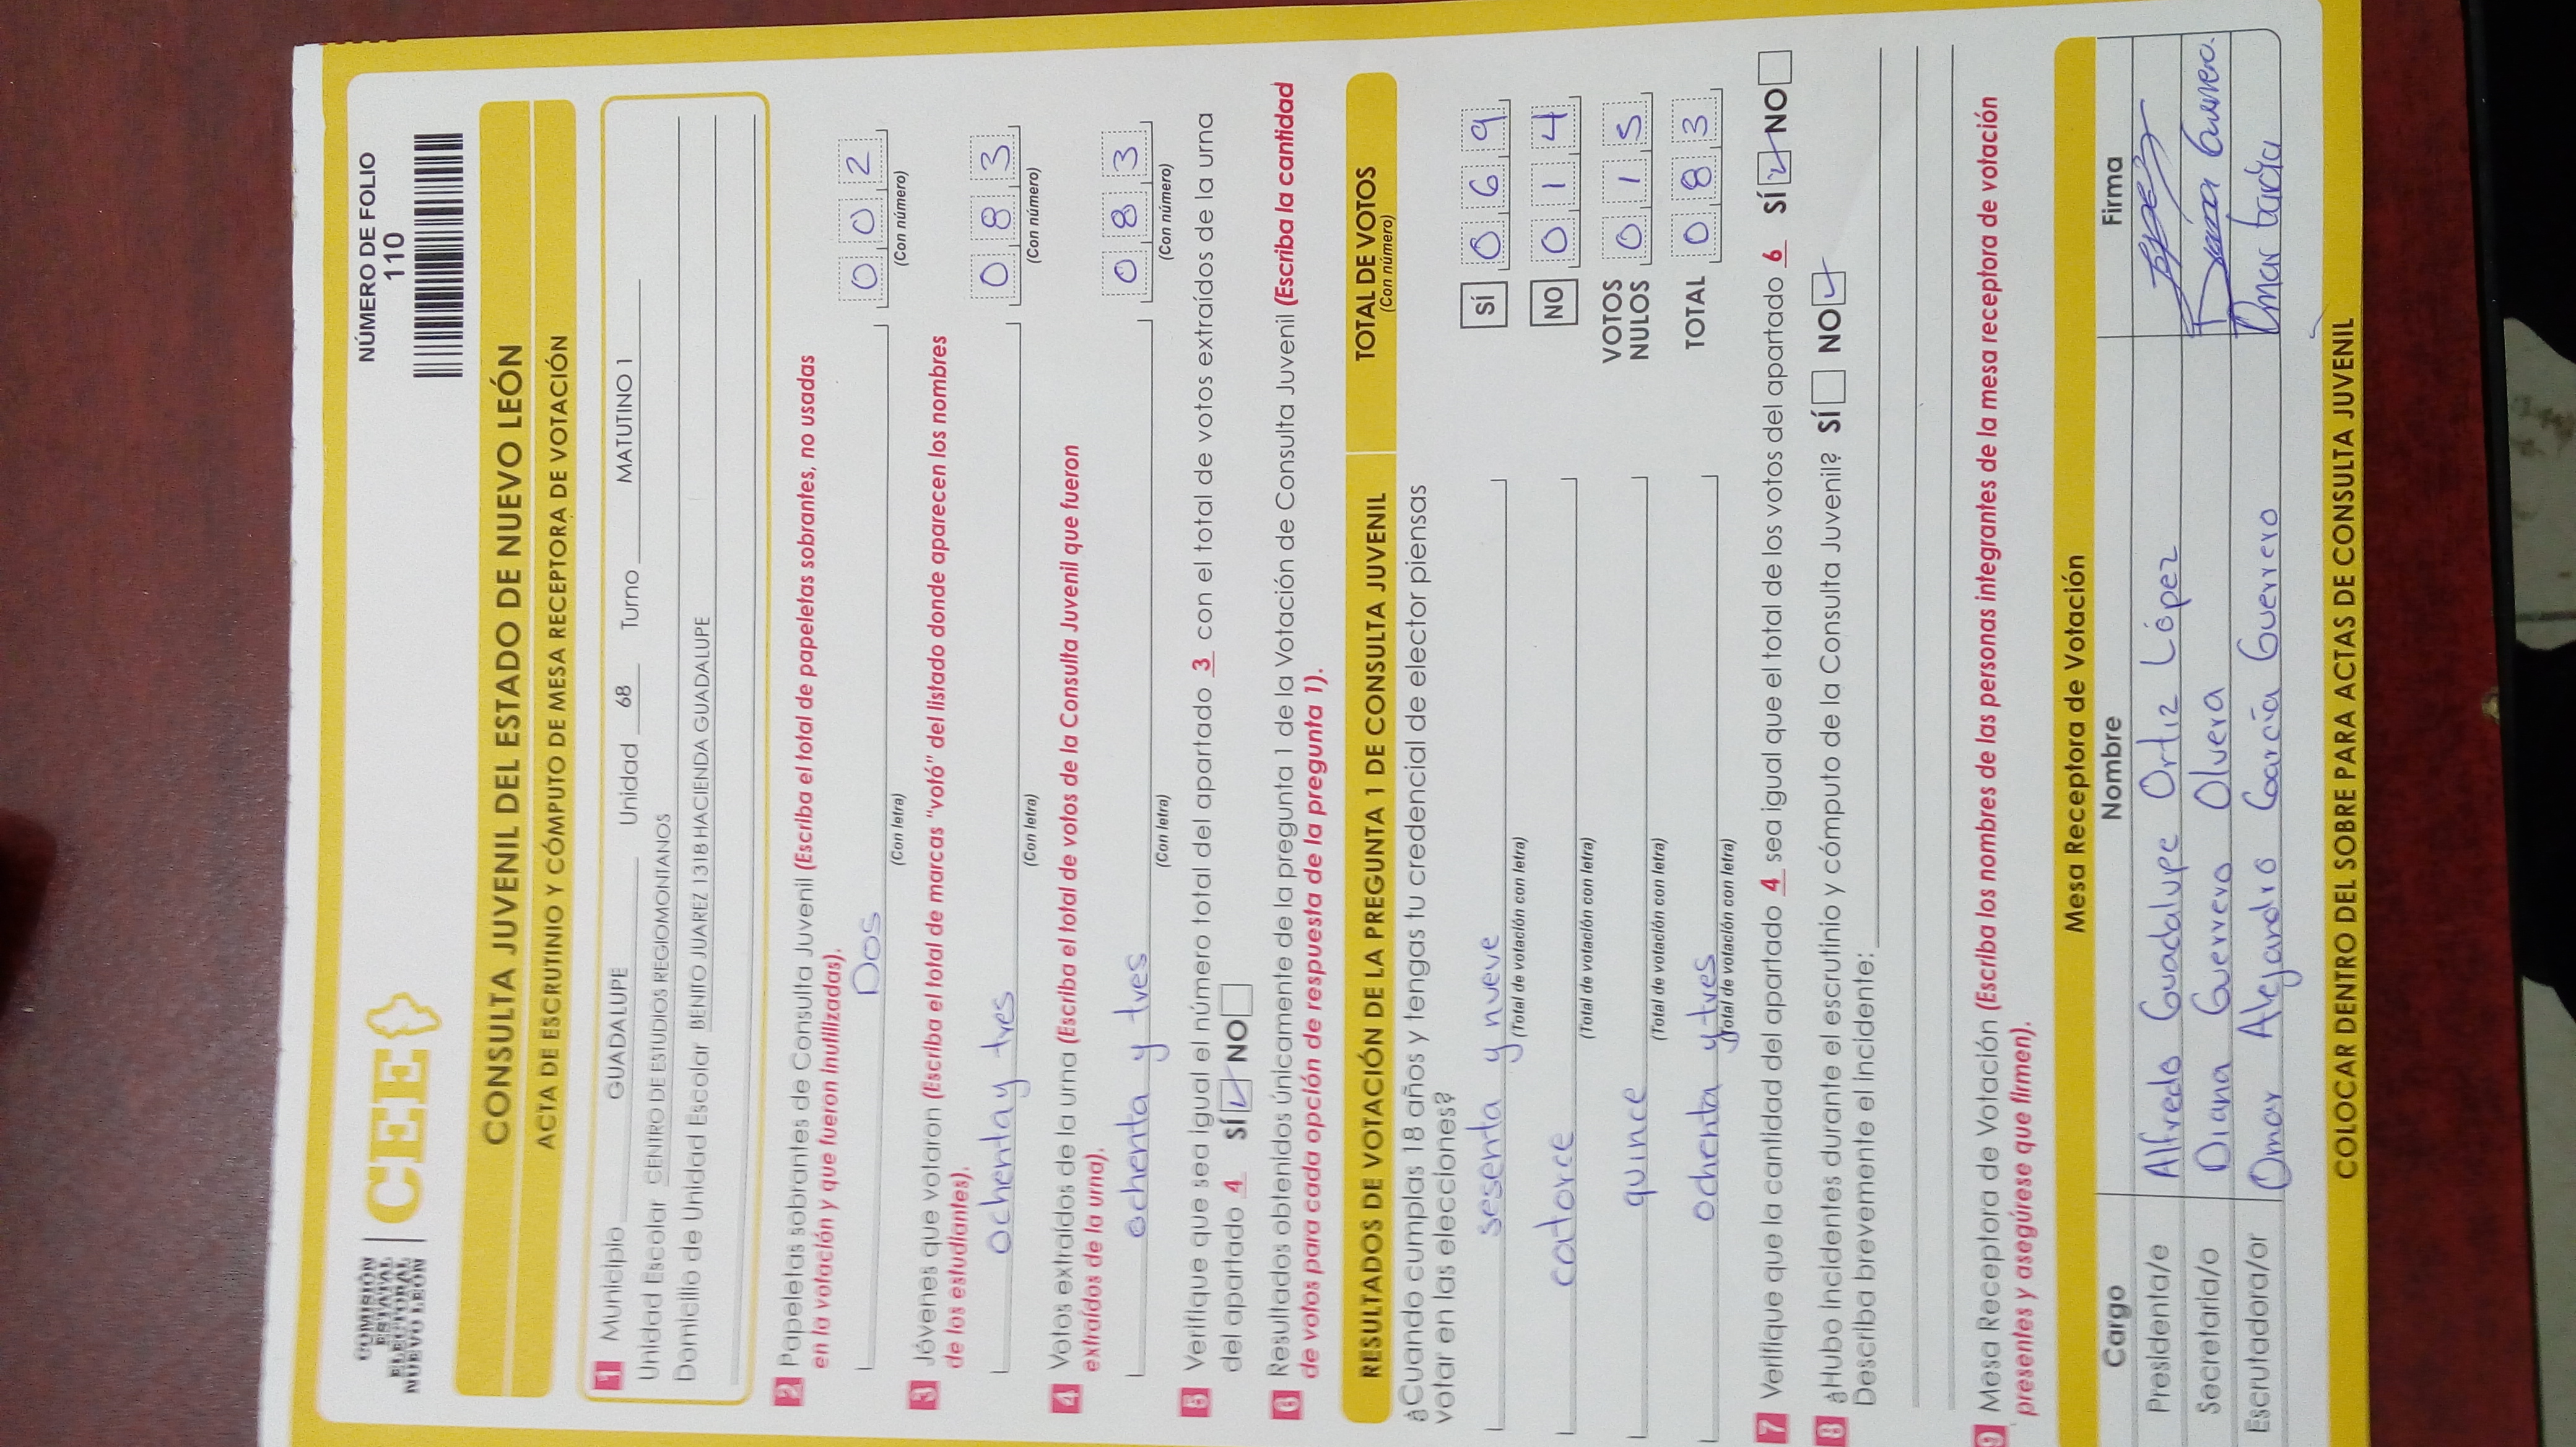 COMISIÓN
ESTATAL
ELECTORAL
NUEVO LEÓN
CEE
NÚMERO DE FOLIO
110
CONSULTA JUVENIL DEL ESTADO DE NUEVO LEÓN
ACTA DE ESCRUTINIO Y CÓMPUTO DE MESA RECEPTORA DE VOTACIÓN
1 Municipio GUADALUPE Unidad 68 Turno MATUTINO 1
Unidad Escolar CENTRO DE ESTUDIOS REGIOMONTANOS
Domicilio de Unidad Escolar BENITO JUAREZ 1318 HACIENDA GUADALUPE
2 Papeletas sobrantes de Consulta Juvenil (Escriba el total de papeletas sobrantes, no usadas
en la votación y que fueron inutilizadas).
Dos 0 0 2
(Con letra) (Con número)
3 Jóvenes que votaron (Escriba el total de marcas "votó" del listado donde aparecen los nombres
de los estudiantes).
ochenta y tres 0 8 3
(Con letra) (Con número)
4 Votos extraídos de la urna (Escriba el total de votos de la Consulta Juvenil que fueron
extraídos de la urna).
ochenta y tres 0 8 3
(Con letra) (Con número)
5 Verifique que sea igual el número total del apartado 3 con el total de votos extraídos de la urna
del apartado 4 SÍ NO
6 Resultados obtenidos únicamente de la pregunta 1 de la Votación de Consulta Juvenil (Escriba la cantidad
de votos para cada opción de respuesta de la pregunta 1).
RESULTADOS DE VOTACIÓN DE LA PREGUNTA 1 DE CONSULTA JUVENIL TOTAL DE VOTOS
(Con número)
¿Cuando cumplas 18 años y tengas tu credencial de elector piensas
votar en las elecciones?
sesenta y nueve SÍ 0 6 9
(Total de votación con letra)
catorce NO 0 1 4
(Total de votación con letra)
quince VOTOS NULOS 0 1 5
(Total de votación con letra)
ochenta y tres TOTAL 0 8 3
(Total de votación con letra)
7 Verifique que la cantidad del apartado 4 sea igual que el total de los votos del apartado 6 SÍ NO
8 ¿Hubo incidentes durante el escrutinio y cómputo de la Consulta Juvenil? SÍ NO
Describa brevemente el incidente:
9 Mesa Receptora de Votación (Escriba los nombres de las personas integrantes de la mesa receptora de votación
presentes y asegúrese que firmen).
Mesa Receptora de Votación
Cargo Nombre Firma
Presidenta/e Alfredo Guadalupe Ortiz López
Secretaria/o Diana Guerrero Olvera
Escrutadora/or Omar Alejandro García Guerrero Omar García
COLOCAR DENTRO DEL SOBRE PARA ACTAS DE CONSULTA JUVENIL